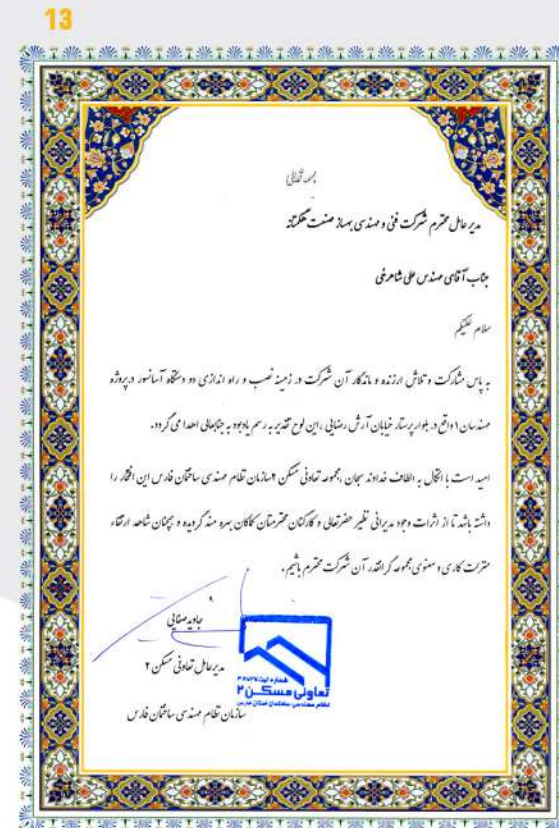 13
بسمه تعالی
مدیر عامل محترم شرکت فنی و مهندسی بهساز صنعت هگمتانه
جناب آقای مهندس علی شاهرخی
سلام علیکم
به پاس مشارکت و تلاش ارزنده و ماندگار آن شرکت در زمینه نصب و راه اندازی دو دستگاه آسانسور در پروژه
مهندسان ۱ واقع در بلوار پرستار خیابان آرش رضایی ، این لوح تقدیر به رسم یادبود به جنابعالی اهدا می گردد.
امید است با اتکال به الطاف خداوند سبحان ، مجموعه تعاونی مسکن ۲ سازمان نظام مهندسی ساختمان فارس این افتخار را
داشته باشد تا از اثرات وجود مدیرانی نظیر حضرتعالی و کارکنان محترمتان کماکان بهره مند گردیده و همچنان شاهد ارتقاء
منزلت کاری و معنوی مجموعه گرانقدر آن شرکت محترم باشیم .
جاوید صفایی
مدیرعامل تعاونی مسکن ۲
سازمان نظام مهندسی ساختمان فارس
شماره ثبت
تعاونی مسکن ۲
نظام مهندسی ساختمان استان فارس